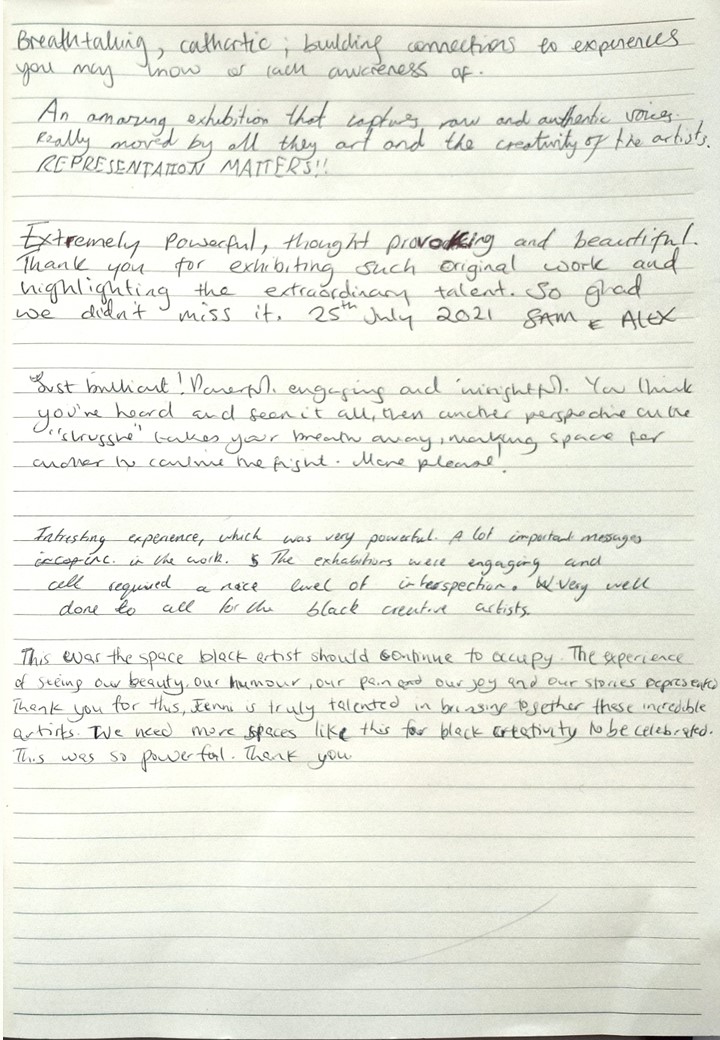 Breathtaking, cathartic; building connections to experiences
you may know or lack awareness of.
An amazing exhibition that captures raw and authentic voices.
Really moved by all they art and the creativity of the artists.
REPRESENTATION MATTERS!!
Extremely Powerful, thought provoking and beautiful.
Thank you for exhibiting such original work and
highlighting the extraordinary talent. So glad
we didn't miss it. 25th July 2021 SAM & ALEX
Just brilliant! Powerful, engaging and insightful. You think
you've heard and seen it all, then another perspective on the
"struggle" takes your breath away, making space for
another to continue the fight. More please!
Intresting experience, which was very powerful. A lot important messages
in the work. The exhabitors were engaging and
required a nice level of interspection. Very well
done to all for the black creative artists.
This was the space black artist should continue to occupy. The experience
of seeing our beauty, our humour, our pain and our joy and our stories represented
Thank you for this, Jenni is truly talented in bringing together these incredible
artists. We need more spaces like this for black creativity to be celebrated.
This was so powerful. Thank you